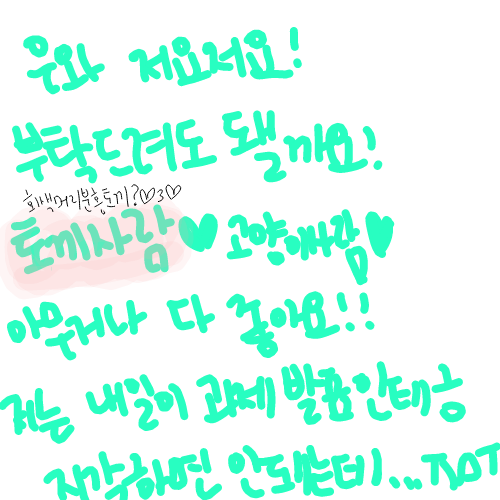 우와 저요저요!
부탁드려도 될까요!
회색머리분홍토끼?♡3♡
토끼사람♥ 고양이사람♥
아무거나 다 좋아요!!
저는 내일이 과제 발표인데능
지각하면 안돼는데...ㅠㅁㅠ